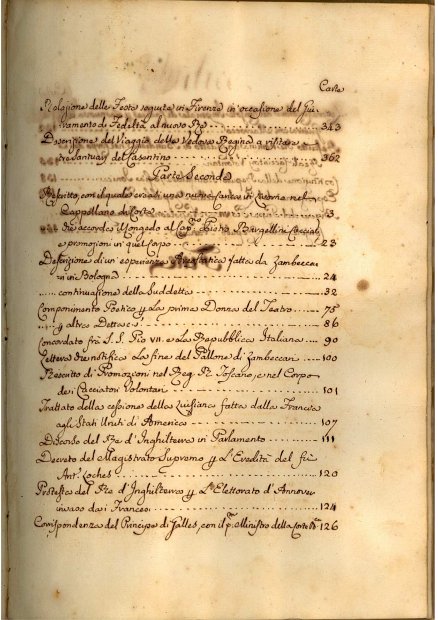 Carte
Relazione delle Feste seguite in Firenze in occasione del Giu-
ramento di Fedeltà al nuovo Re 343
Descrizione del Viaggio della Vedova Regina a visitare
i tre Santuari del Casentino 362
Parte Seconda
Rescritto, con il quale creasi una nuova Carica in Livorno nel
Cappellano di Corte 3
che accorda il Congedo al Cap.º Pietro Bargellini Cacciat.
e promozioni in quel Corpo 23
Descrizione di un'esperienza Areostatica fatta da Zambeccari
in Bologna 24
continuazione della Suddetta 32
Componimento Poetico p la prima Donna del Teatro 75
p altro Dettaresi 86
Concordato fra S. S. Pio VII. e la Repubblica Italiana 90
Lettera che notifica la fine del Pallone di Zambeccari 100
Rescritto di Promozioni nel Reg. R. Toscano, e nel Corpo
dei Cacciatori Volontari 101
Trattato della cessione della Luisiana fatta dalla Francia
agli Stati Uniti di America 107
Discorso del Re d'Inghilterra in Parlamento 111
Decreto del Magistrato Supremo p L'Eredità del fù
Ant.º Coches 120
Protesta del Re d'Inghilterra p L'Elettorato d'Annover
invaso dai Francesi 124
Corrispondenza del Principe di Galles, con il p.º Ministro della Corte 126